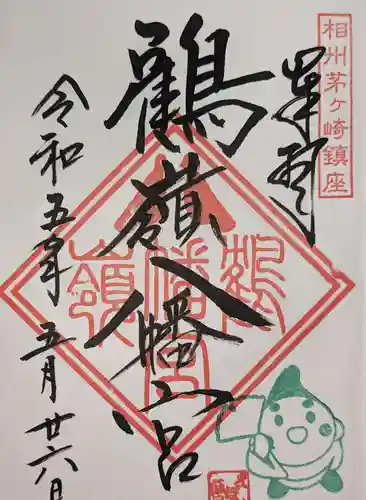 相州茅ヶ崎鎮座
奉拝
鶴嶺八幡宮
令和五年 五月 廿六日